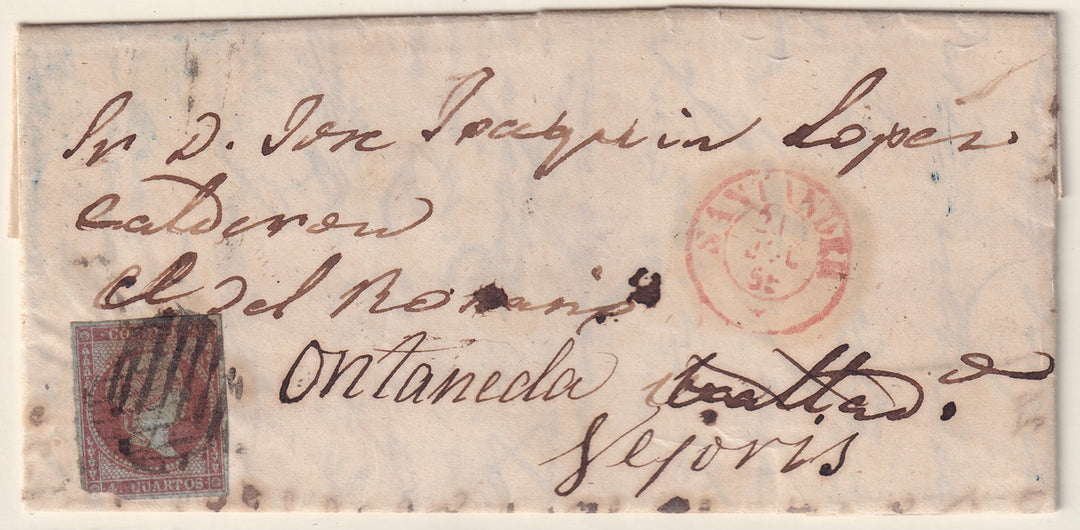 Sr D. Jose Joaquin Lopez
Calderon
Cl del Rosario
Ontaneda
Vejoris
SANTANDER
55
4 CUARTOS